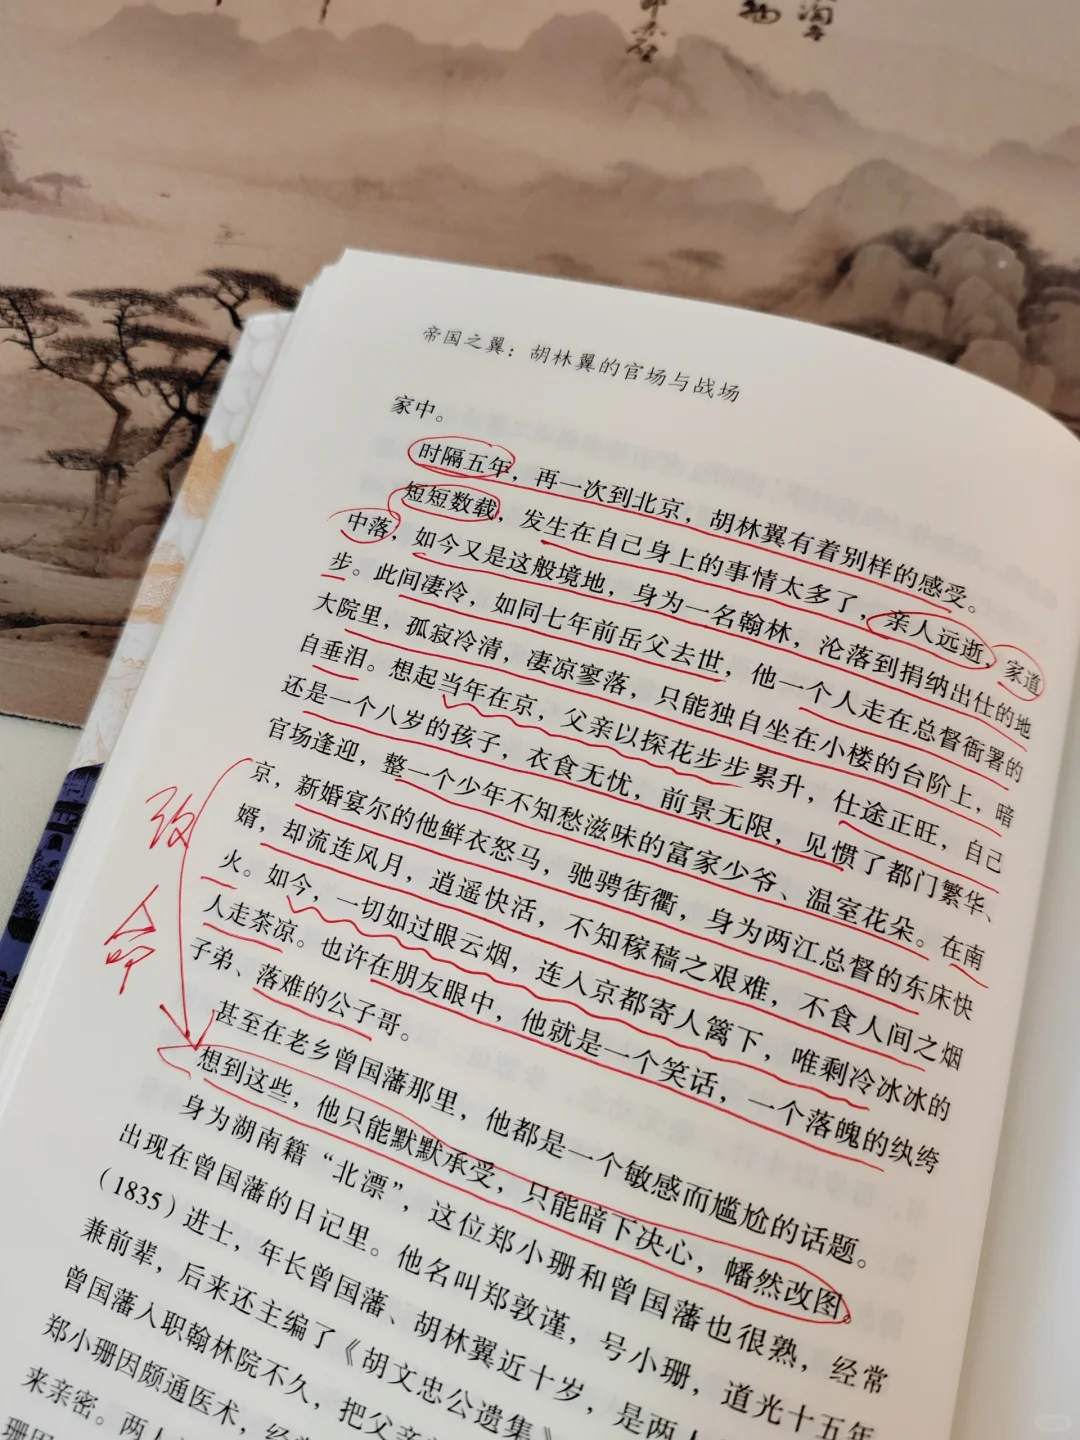 帝国之翼：胡林翼的官场与战场
家中。
时隔五年，再一次到北京，胡林翼有着别样的感受。
短短数载，发生在自己身上的事情太多了，亲人远逝，家道
中落，如今又是这般境地，身为一名翰林，沦落到捐纳出仕的地
步。此间凄冷，如同七年前岳父去世，他一个人走在总督衙署的
大院里，孤寂冷清，凄凉寥落，只能独自坐在小楼的台阶上，暗
自垂泪。想起当年在京，父亲以探花步步累升，仕途正旺，自己
还是一个八岁的孩子，衣食无忧，前景无限，见惯了都门繁华、
官场逢迎，整一个少年不知愁滋味的富家少爷、温室花朵。在南
京，新婚宴尔的他鲜衣怒马，驰骋街衢，身为两江总督的东床快
婿，却流连风月，逍遥快活，不知稼穑之艰难，不食人间之烟
火。如今，一切如过眼云烟，连入京都寄人篱下，唯剩冷冰冰的
人走茶凉。也许在朋友眼中，他就是一个笑话，一个落魄的纨绔
子弟、落难的公子哥。
甚至在老乡曾国藩那里，他都是一个敏感而尴尬的话题。
想到这些，他只能默默承受，只能暗下决心，幡然改图。
身为湖南籍“北漂”，这位郑小珊和曾国藩也很熟，经常
出现在曾国藩的日记里。他名叫郑敦谨，号小珊，道光十五年
（1835）进士，年长曾国藩、胡林翼近十岁，是两人
兼前辈，后来还主编了《胡文忠公遗集》
曾国藩入职翰林院不久，把父亲
郑小珊因颇通医术，经
来亲密。两人
珊因
改命